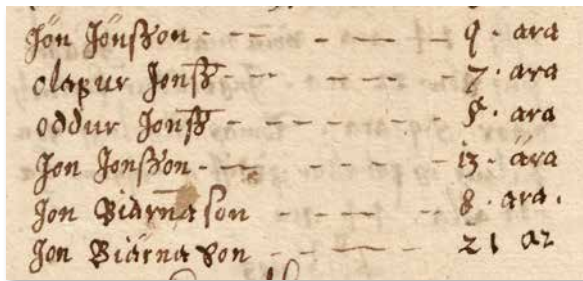 Jón Jónsson - - - - - - - - 9 · ara
olafur Jonss - - - - - - - - 7 · ara
oddur Jonss - - - - - - - - 5 · ara
Jon Jonsson - - - - - - - - 13 · ara
Jon Biarnason - - - - - - 8 · ara ·
Jon Biarna son - - - - - - 21 ar